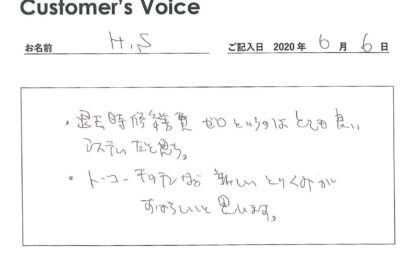 Customer's Voice
お名前 H.S ご記入日 2020年 6月 6日
・退去時修繕費 ゼロというのはとても良い
システムだと思う。
・トーコーキッチンなど 新しいとりくみが
すばらしいと思います。